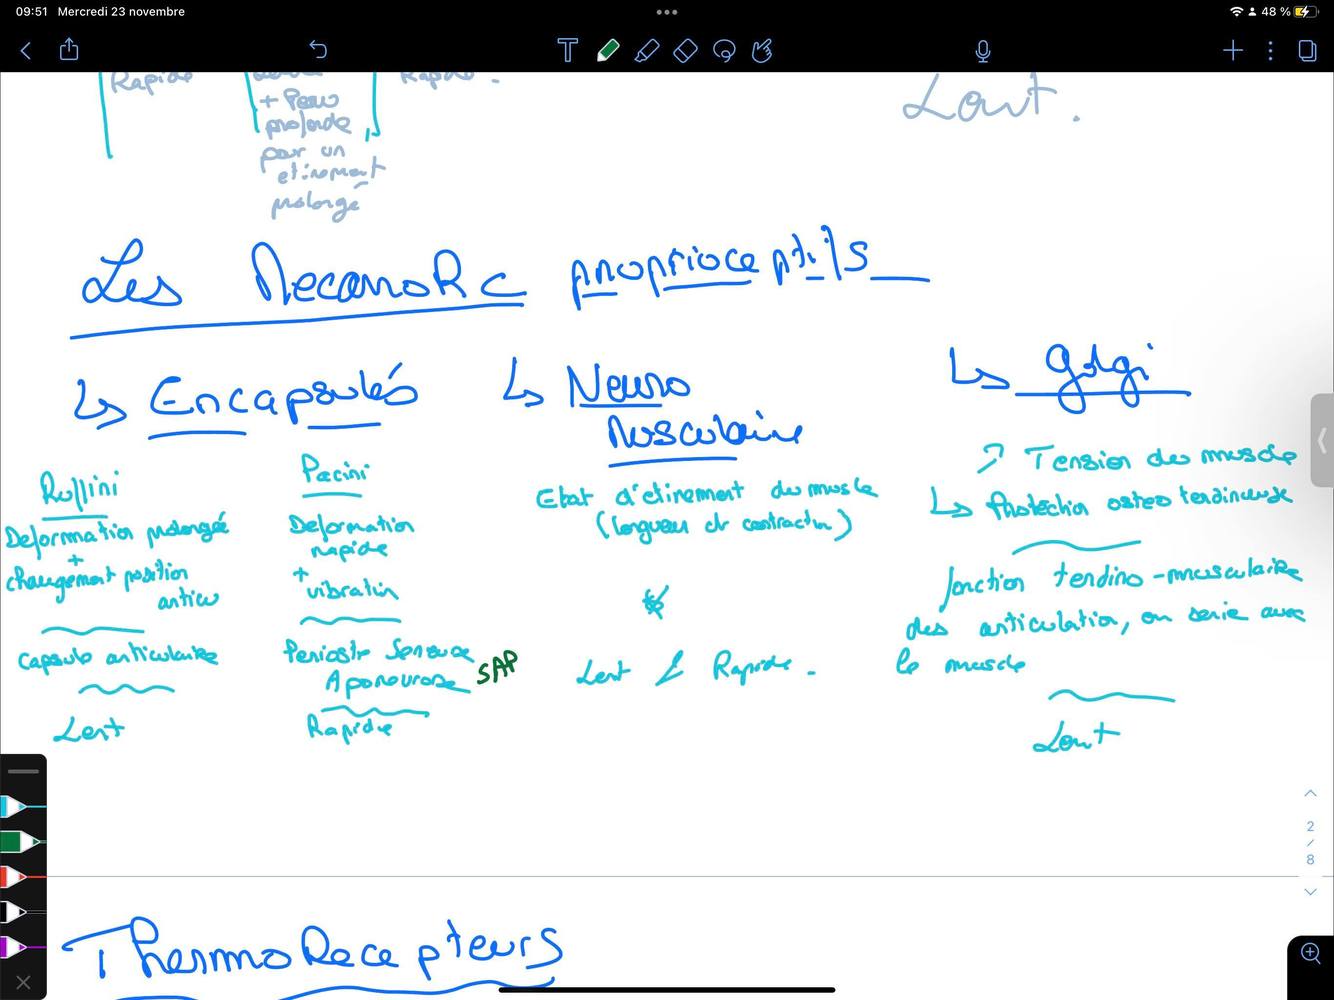 09:51 Mercredi 23 novembre
48 %
Rapide
+ Peau
profonde
pour un
etirement
prolongé
Lent.
Les MecanoRc proprioceptifs
↳ Encapsulés
↳ Neuro
Musculaire
↳ Golgi
Ruffini
Deformation prolongée
+
changement position
articu
capsule articulaire
Lent
Pacini
Deformation
rapide
+
vibration
Perioste
Aponeurose
SAP
Rapide
Etat d'etirement du muscle
(longueur et contraction)
Lent / Rapide.
↗ Tension du muscle
↳ Protection osteo tendineuse
Jonction tendino-musculaire
des articulation, en serie avec
le muscle
Lent
2
/
8
ThermoRecepteurs